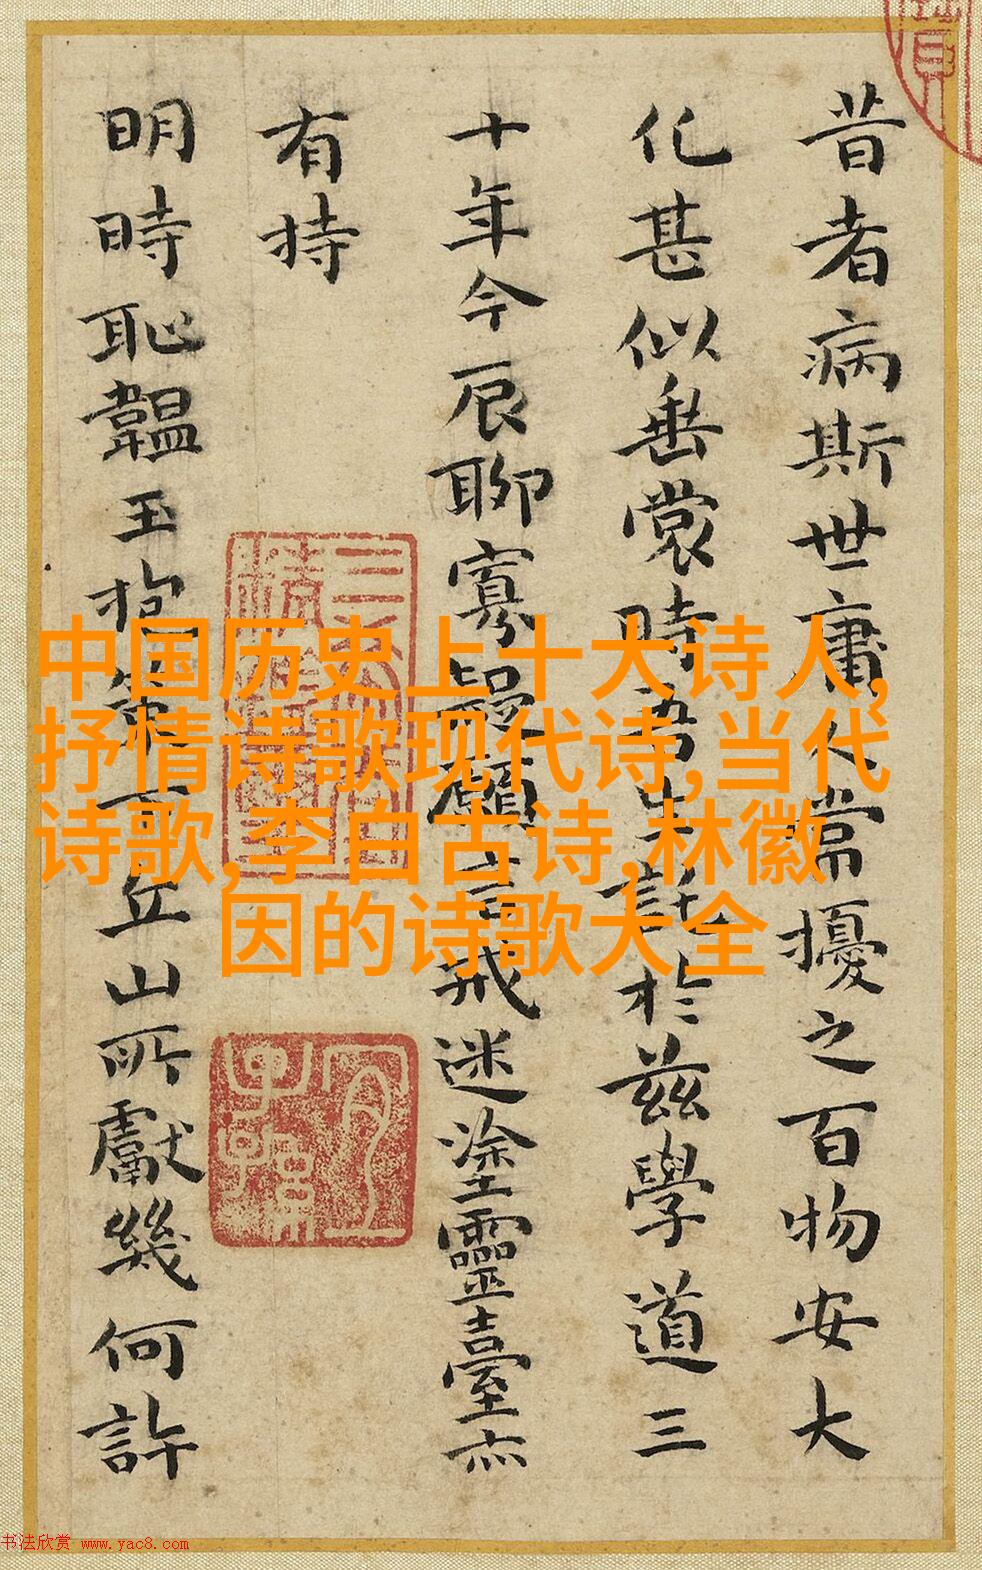 昔者病斯世庸人常擾之百物安大
化甚似垂裳時吾生託於茲學道三
十年今辰聊寡疑願言戒迷塗靈臺亦
有持
明時恥韞玉抱
丘山所獻幾何許
中国历史上十大诗人,
抒情诗歌现代诗,当代
诗歌,李白古诗,林徽
因的诗歌大全
书法欣赏 www.yac8.com